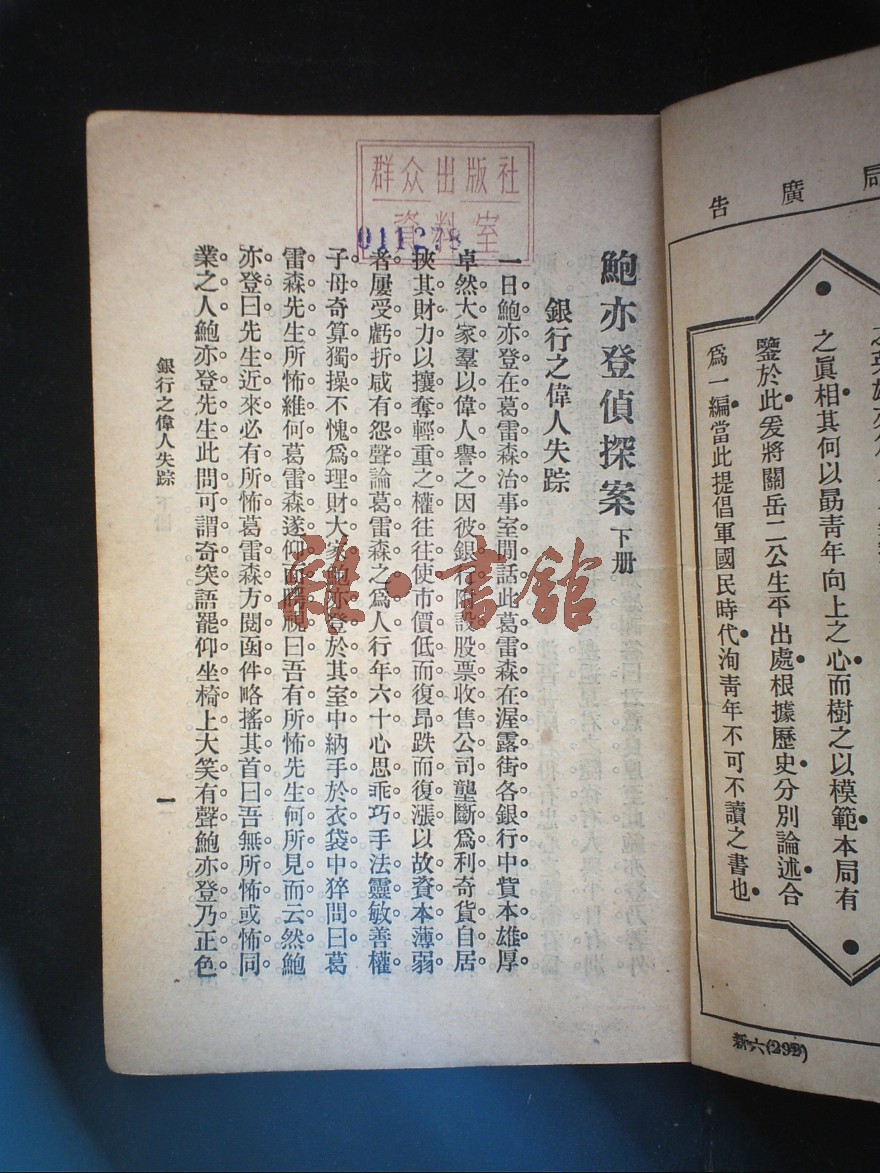 局廣告
之真相其何以勗青年向上之心而樹之以模範本局有
鑒於此爰將關岳二公生平出處根據歷史分別論述合
爲一編當此提倡軍國民時代洵青年不可不讀之書也
新六(292)
群众出版社
資料室
011278
鮑亦登偵探案 下册
銀行之偉人失踪
一日鮑亦登在葛雷森治事室閒話此葛雷森在渥露街各銀行中貲本雄厚
卓然大家羣以偉人譽之因彼銀行附設股票收售公司壟斷爲利奇貨自居
挾其財力以攘奪輕重之權往往使市價低而復昂跌而復漲以故資本薄弱
者屢受虧折咸有怨聲論葛雷森之爲人行年六十心思乖巧手法靈敏善權
子母奇算獨操不愧爲理財大家鮑亦登於其室中納手於衣袋中猝問曰葛
雷森先生所怖維何葛雷森遂仰面 視曰吾有所怖先生何所見而云然鮑
亦登曰先生近來必有所怖葛雷森方閱函件略搖其首曰吾無所怖或怖同
業之人鮑亦登先生此問可謂奇突語罷仰坐椅上大笑有聲鮑亦登乃正色
銀行之偉人失踪
一
雜·書館